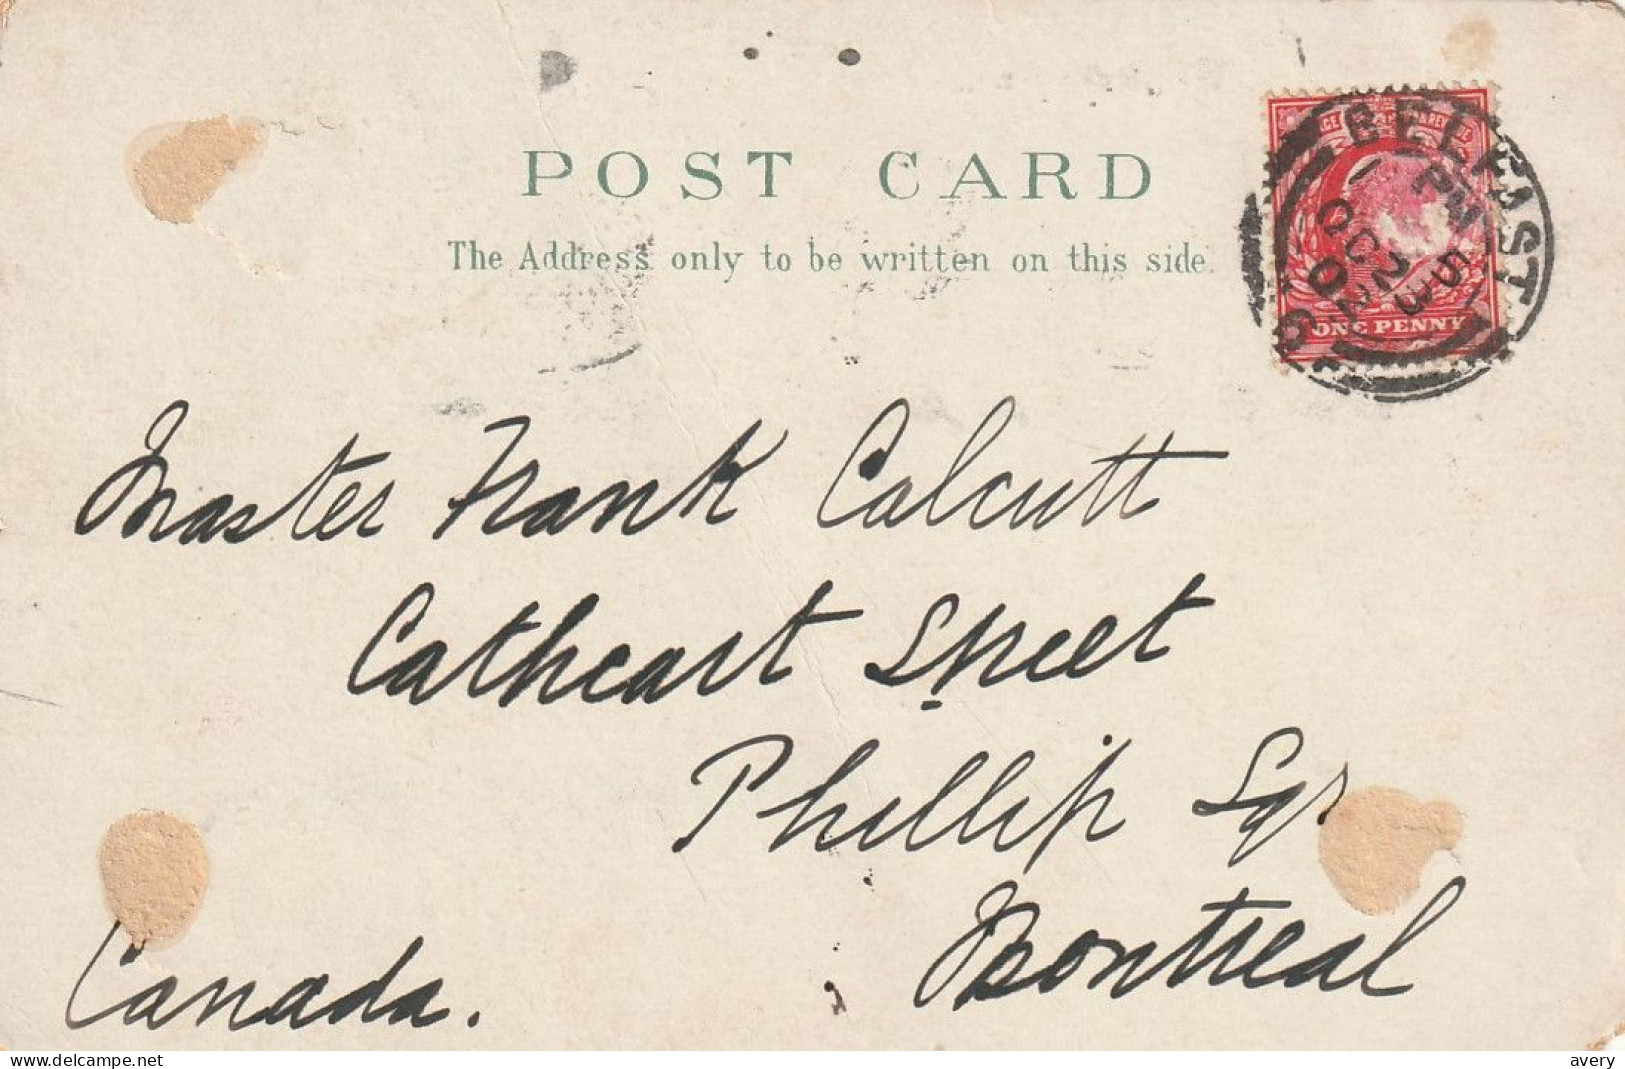 POST CARD
The Address only to be written on this side.
BELFAST
5 PM
OC 23
02
ONE PENNY
Master Frank Calcutt
Cathcart Street
Phillip Sqr
Montreal
Canada.
delcampe.net
avery